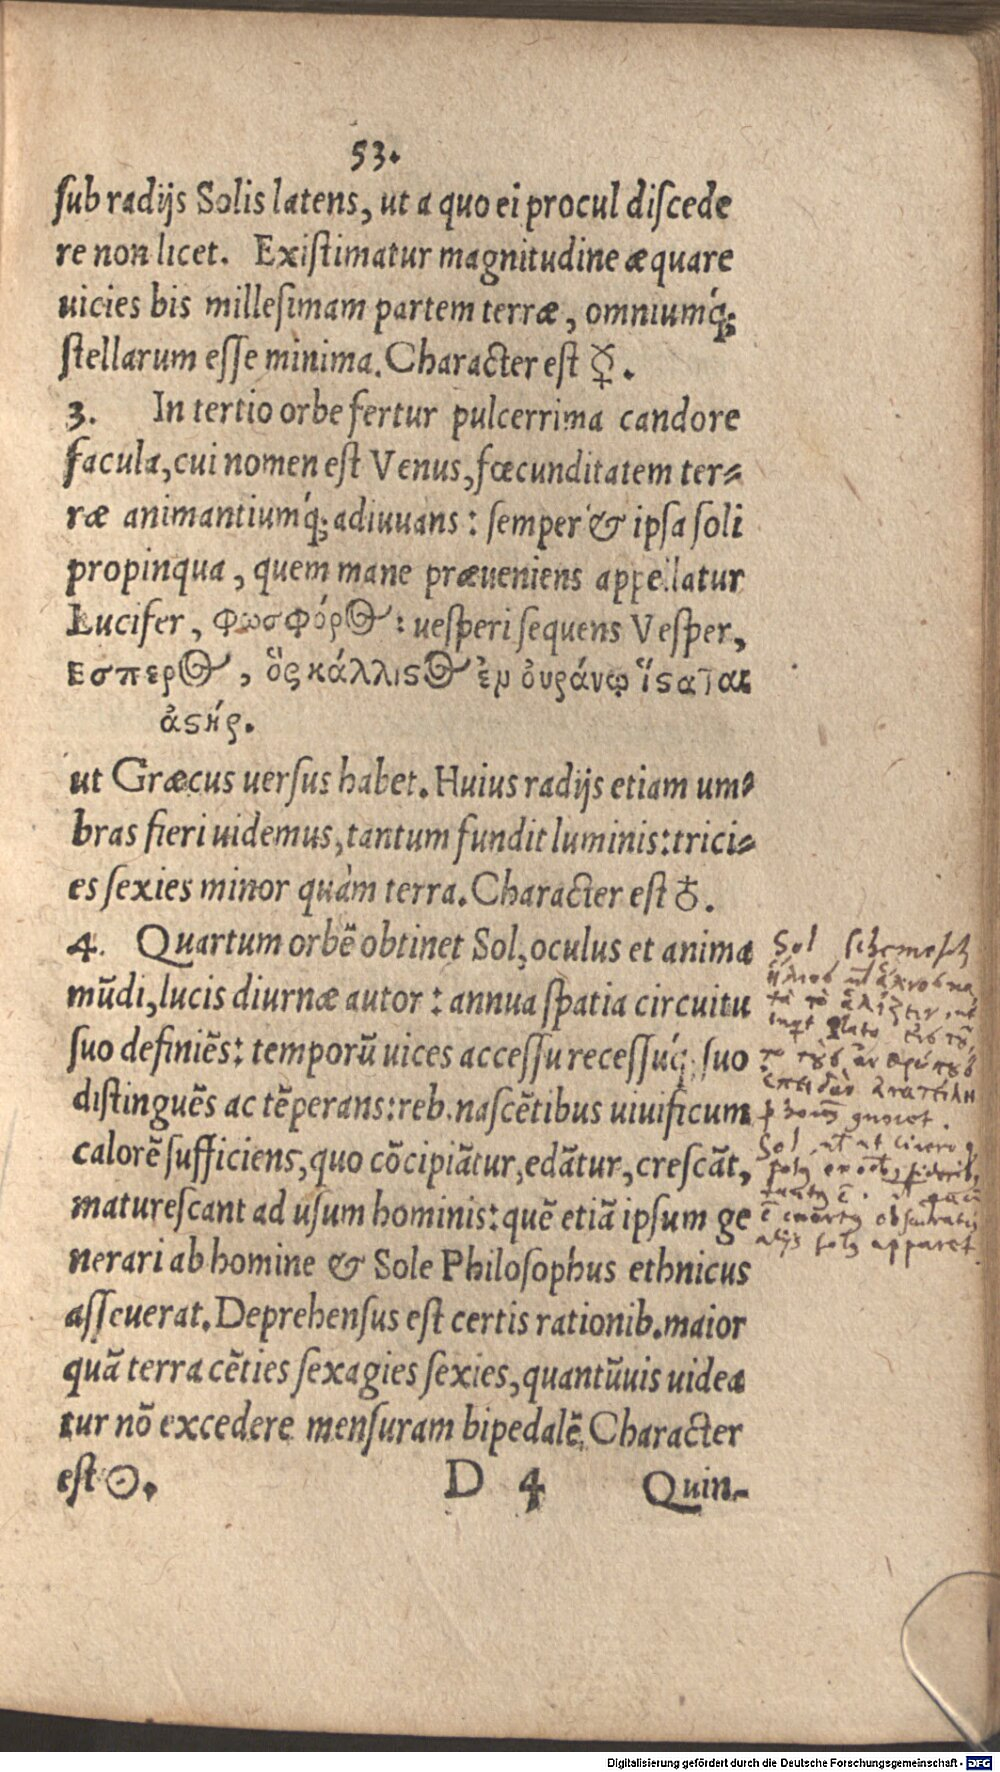 53.
ſub radijs Solis latens, ut a quo ei procul diſcede
re non licet. Exiſtimatur magnitudine æquare
uicies bis milleſimam partem terræ, omniumq́;
ſtellarum eſſe minima. Character eſt ☿.
3. In tertio orbe fertur pulcerrima candore
facula, cui nomen eſt Venus, fœcunditatem ter-
ræ animantiumq́; adiuuans: ſemper & ipſa ſoli
propinqua, quem mane præueniens appellatur
Lucifer, φωσφόρος: ueſperi ſequens Veſper,
Εσπερος, ὃς κάλλιϛος ἐν οὐράνῳ ἵϛαται
ἀϛήρ.
ut Græcus uerſus habet. Huius radijs etiam um-
bras fieri uidemus, tantum fundit luminis: trici-
es ſexies minor quàm terra. Character eſt ♁.
4. Quartum orbẽ obtinet Sol, oculus et anima
mũdi, lucis diurnæ autor: annua ſpatia circuitu
ſuo definiẽs: temporũ uices acceſſu receſſuq́; ſuo
diſtinguẽs ac tẽperans: reb. naſcẽtibus uiuificum
calorẽ ſufficiens, quo cõcipiãtur, edãtur, creſcãt,
matureſcant ad uſum hominis: quẽ etiã ipſum ge
nerari ab homine & Sole Philoſophus ethnicus
aſſeuerat. Deprehenſus eſt certis rationib. maior
quã terra cẽties ſexagies ſexies, quantũuis uidea
tur nõ excedere menſuram bipedalẽ. Character
eſt ☉.
D 4 Quin-
Sol
Plato
Sol ut Cicero
obscuratis
alijs apparet
Digitalisierung gefördert durch die Deutsche Forschungsgemeinschaft - DFG